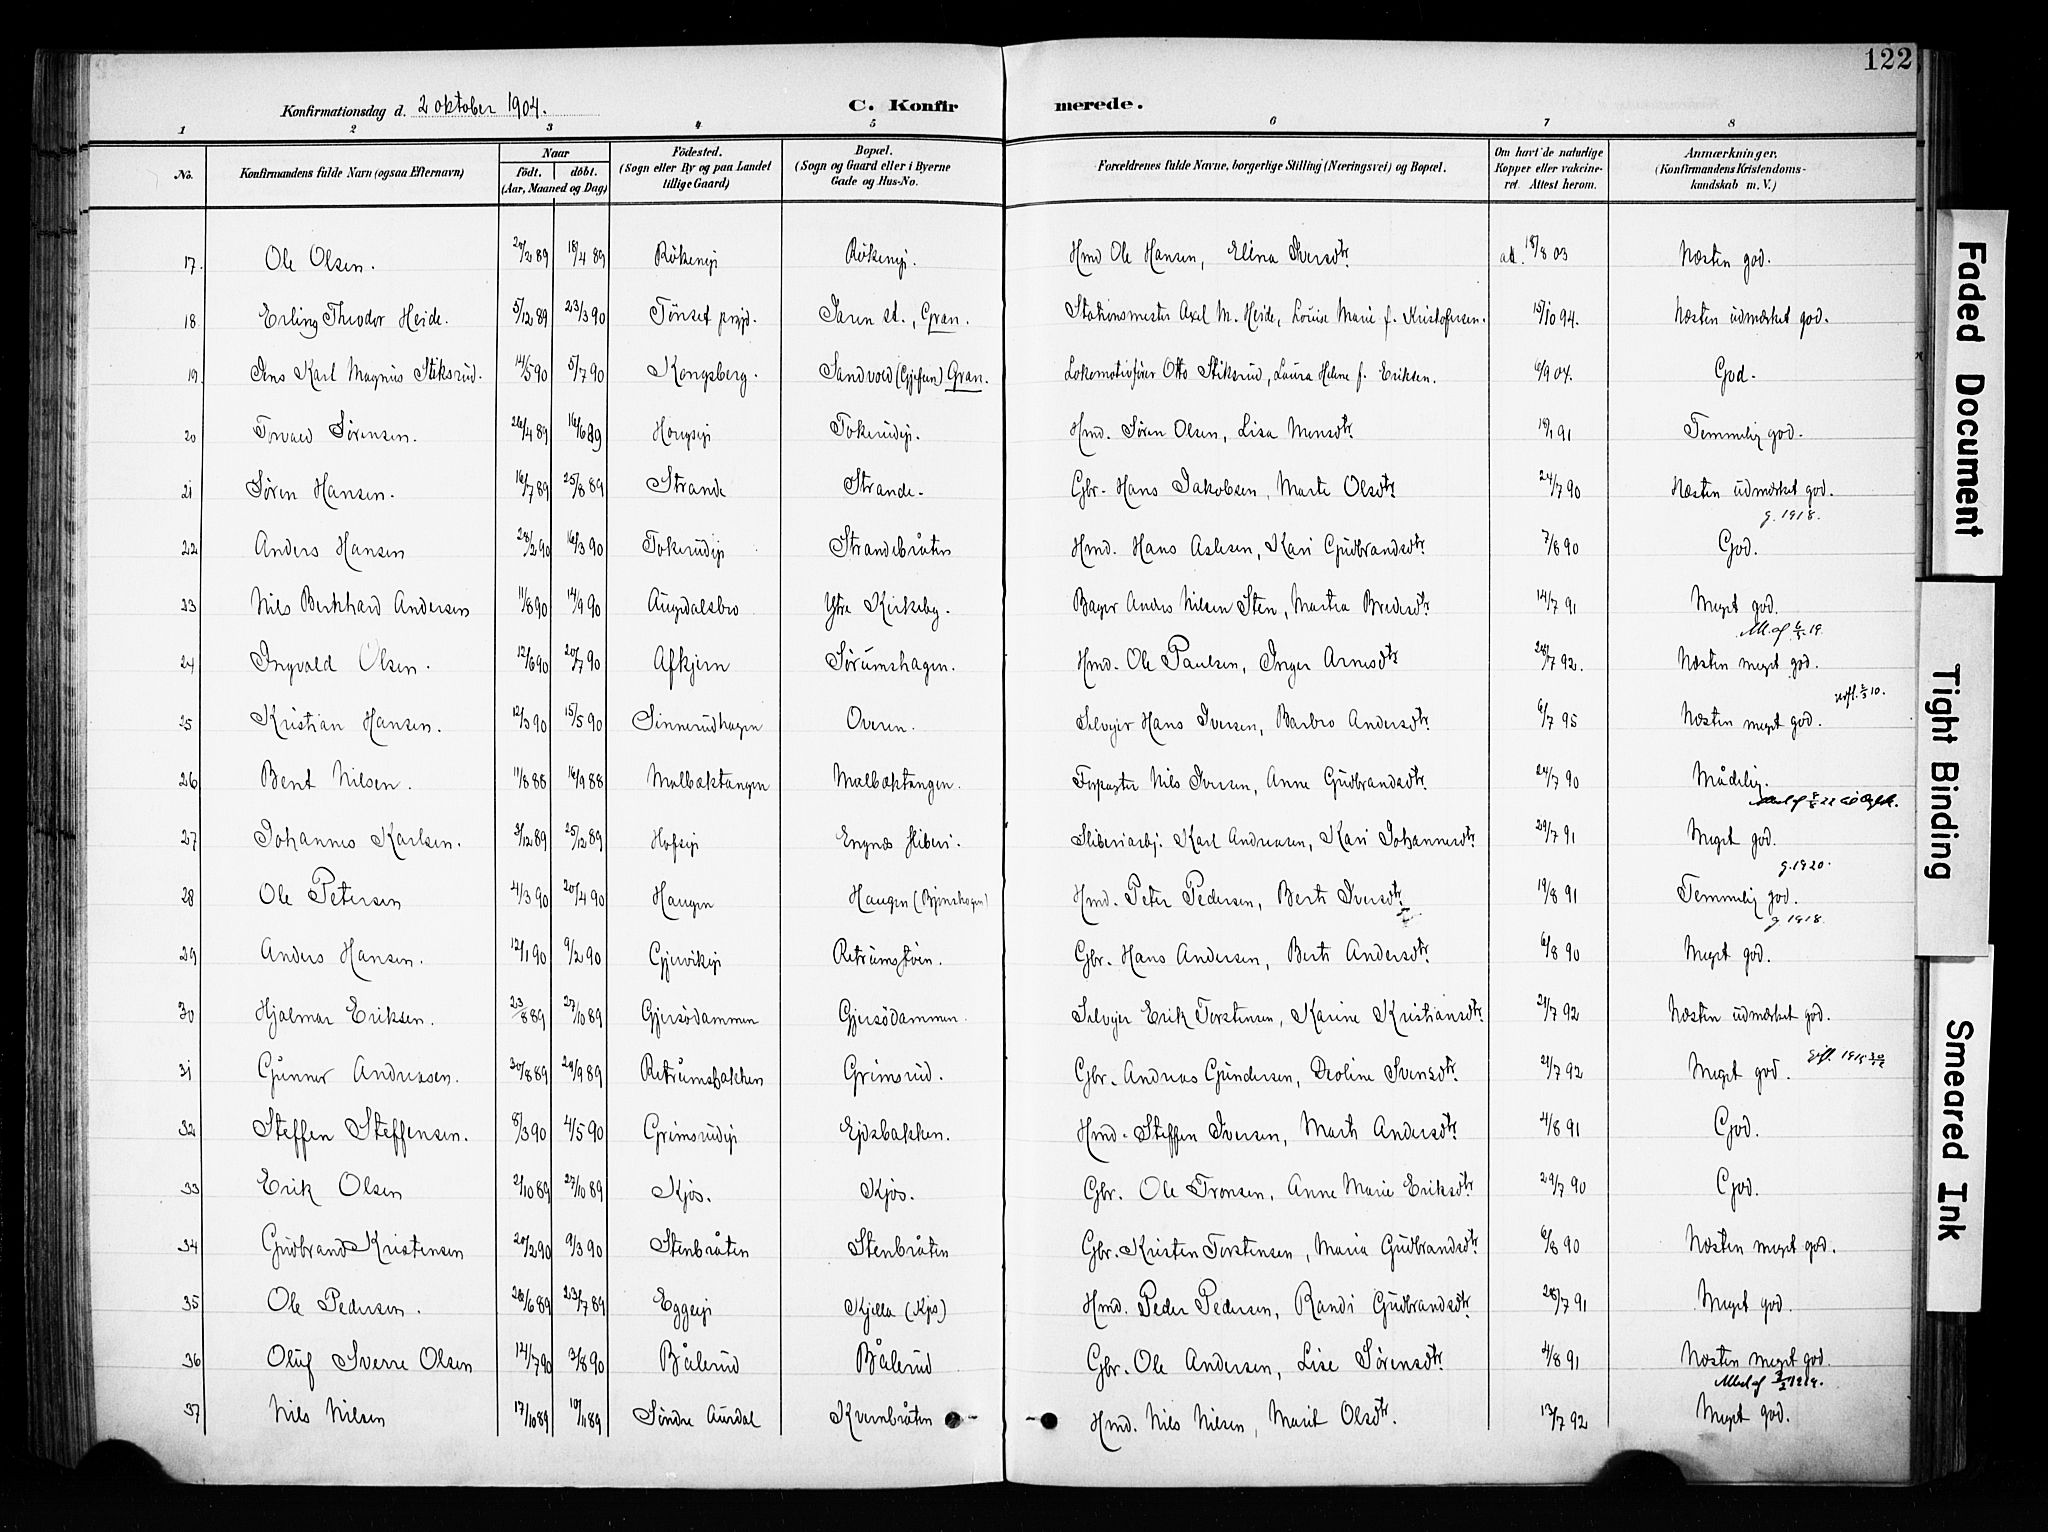 122
Konfirmationsdag d. 2 oktober 1904.
C. Konfirmerede.
1 2 3 4 5 6 7 8
No. Konfirmandens fulde Navn (ogsaa Efternavn) Naar født. døbt. (Aar, Maaned og Dag) Födested. (Sogn eller By og paa Landet tillige Gaard) Bopæl. (Sogn og Gaard eller i Byerne Gade og Hus-No. Forældrenes fulde Navne, borgerlige Stilling (Næringsvei) og Bopæl. Om havt de naturlige Kopper eller vakcineret. Attest herom. Anmærkninger. (Konfirmandens Kristendomskundskab m. V.)
17. Ole Olsen. /2 89 18/4 89 Rökeneji Rökeneji. Hmd Ole Hansen, Elina Iversdtr. att. 18/8 03 Næsten god.
18 Erling Theodor Heide. 5/12 89 23/3 90 Tönset prgjd. Jaren st., Gran. Stationsmester Axel M. Heide, Louise Marie f. Kristofersen. 15/10 94. Næsten udmærket god.
19. Jens Karl Magnus Stiksrud. 14/5 90 5/7 90 Kongsberg. Sandvold (Gjefsen) Gran. Lokomotivfører Otto Stiksrud, Laura Helene f. Eriksen. 6/9 04. God.
20 Torvald Sørensen. 26/4 89 16/6 89 Tokerudeji. Hmd. Søren Olsen, Lisa Monsdtr. 18/1 91 Temmelig god.
21 Søren Hansen. 16/7 89 25/8 89 Strande Strande. Gbr. Hans Jakobsen, Marte Olsdtr. 24/7 90 Næsten udmærket god.
g. 1918.
22 Anders Hansen 28/2 90 16/3 90 Tokerudeji Strandebråten Hmd. Hans Aslesen, Kari Gudbrandsdtr. 7/8 90 God.
23 Nils Berkhard Andersen 11/8 90 14/9 90 Augedalsbro Ytre Kirkeby. Bager Anders Nilsen Sten, Martea Bredesdtr. 14/7 91 Meget god.
24 Ingvald Olsen. 12/6 90 20/7 90 Afkjern Sørumshagen. Hmd. Ole Paulsen, Inger Arnesdtr. 28/7 92. Næsten meget god.
25 Kristian Hansen. 12/3 90 15/5 90 Sinnerudhagen Overen. Selvejer Hans Iversen, Barbro Andersdtr. 6/7 95 Næsten meget god.
26 Bent Nilsen. 11/8 88 16/9 88 Malbæktangen Malbæktangen. Forpagter Nils Iversen, Anne Gudbrandsdtr. 24/7 90 Mådelig.
27 Johannes Karlsen. 3/12 89 25/12 89 Hofseji Engnæs sliberi. Sliberiarbj. Karl Andreasen, Kari Johannesdtr. 29/7 91 Meget god.
g. 1920.
28 Ole Petersen 4/3 90 20/4 90 Haugen Haugen (Bjønshagen) Hmd. Peter Pedersen, Berte Iversdtr. 19/8 91 Temmelig god.
g. 1918.
29 Anders Hansen. 12/1 90 9/2 90 Gjervikeji Gbr. Hans Andersen, Berte Andersdtr. 6/8 90 Meget god.
30 Hjalmar Eriksen. 23/8 89 27/10 89 Gjersödammen Gjersödammen. Selvejer Erik Torstensen, Karine Kristiansdtr. 21/7 92 Næsten udmærket god.
31 Gunner Andreasen. 30/8 89 29/9 89 Retrumsbakken Grimsrud. Gbr. Andreas Gundersen, Deoline Svensdtr. 21/7 92 Meget god. gift. 1915
32 Steffen Steffensen. 8/3 90 4/5 90 Grimsrudeji Ejdsbakken. Hmd. Steffen Iversen, Marte Andersdtr. 4/8 91 God.
33 Erik Olsen 2/10 89 27/10 89 Kjös. Kjös. Gbr. Ole Tronsen, Anne Marie Eriksdtr. 29/7 90 God.
34 Gudbrand Kristensen 20/2 90 9/3 90 Stenbråten Stenbråten Gbr. Kristen Torstensen, Maria Gudbrandsdtr. 6/8 90 Næsten meget god.
35 Ole Pedersen. 26/6 89 23/7 89 Eggeeji Kjella (Kjös) Hmd. Peder Pedersen, Randi Gudbrandsdtr. 28/7 91 Meget god.
36 Oluf Sverre Olsen 12/7 90 3/8 90 Bålerud Bålerud Gbr. Ole Andersen, Lise Sørensdtr. 4/8 91 Næsten meget god.
37 Nils Nilsen 17/10 89 10/11 89 Søndre Aurdal Kvernbråten Hmd. Nils Nilsen, Marit Olsdtr. 13/7 92 Meget god.
Faded Document
Tight Binding
Smeared Ink